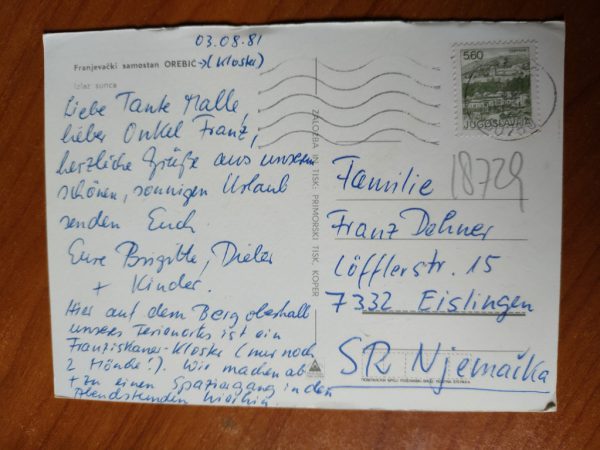 03.08.81
Franjevački samostan OREBIĆ →(Kloster)
Izlaz sunca
Liebe Tante Malle,
lieber Onkel Franz,
herzliche Grüße aus unserm
schönen, sonnigen Urlaub
senden Euch
Eure Brigitte, Dieter
+ Kinder.
Hier auf dem Berg oberhalb
unseres Ferienortes ist ein
Franziskaner-Kloster (nur noch
2 Mönche!). Wir machen ab
+ zu einen Spaziergang in den
Abendstunden
ZALOŽBA IN TISK: PRIMORSKI TISK, KOPER
560
JUGOSLAVIJA
18729
Familie
Franz Dohner
Löfflerstr. 15
7332 Eislingen
SR Njemačka